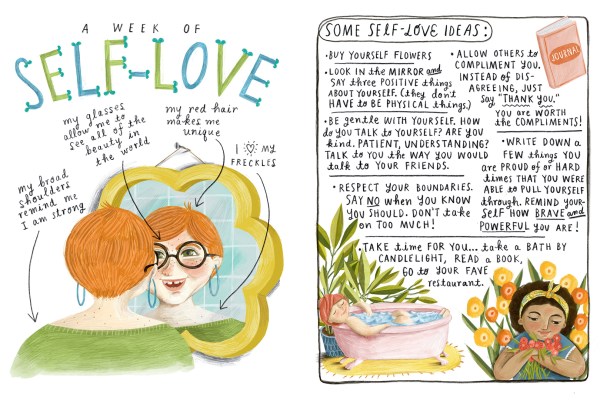 A WEEK OF
SELF-LOVE
my glasses
allow me to
see all of the
beauty in
the world
my red hair
makes me
unique
I ♡ my
FRECKLES
my broad
shoulders
remind me
I am strong
SOME SELF-LOVE IDEAS:
• BUY YOURSELF FLOWERS
• LOOK IN the MIRROR and
SAY three POSITIVE things
ABOUT YOURSELF. (they don't
HAVE to BE PHYSICAL things.)
• BE GENTLE WITH YOURSELF. HOW
do YOU TALK to YOURSELF? ARE YOU
kind, PATIENT, UNDERSTANDING?
TALK to YOU the WAY YOU WOULD
talk to YOUR FRIENDS.
• RESPECT YOUR BOUNDARIES.
SAY NO when YOU KNOW
YOU SHOULD. DON'T take
on TOO MUCH!
• ALLOW OTHERS to
COMPLIMENT YOU.
INSTEAD OF DIS-
AGREEING, JUST
Say "THANK YOU."
YOU are WORTH
the COMPLIMENTS!
JOURNAL
• WRITE DOWN A
FEW things YOU
are PROUD of or HARD
times THAT YOU WERE
ABLE to PULL YOURSELF
through. REMIND YOUR-
SELF HOW BRAVE and
POWERFUL YOU ARE!
• TAKE time FOR YOU... take a BATH BY
CANDLELIGHT, READ a BOOK,
GO to YOUR FAVE
restaurant.